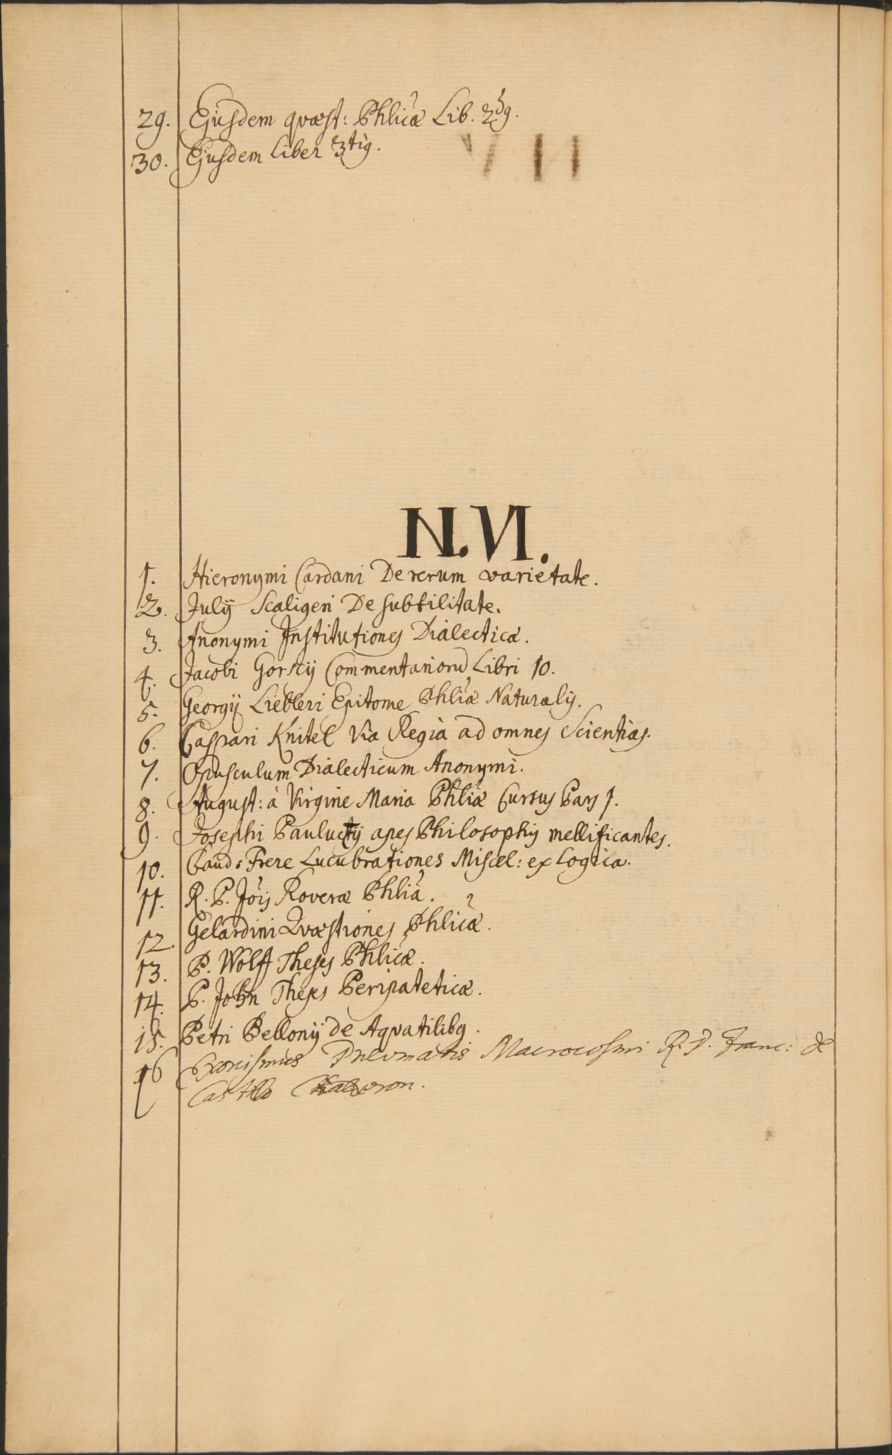 29. Ejusdem quæst: Phlicæ Lib. 2dg.
30. Ejusdem Liber 3tig.
VII
N.VI.
1. Hieronymi Cardani De rerum varietate.
2. Julij Scaligeri De subtilitate.
3. Anonymi Institutiones Dialecticæ.
4. Jacobi Gorscij Commentariorū Libri 10.
5. Georgij Liebleri Epitome Phliæ Naturalis.
6. Caspari Knitel Via Regia ad omnes Scientias.
7. Opusculum Dialecticum Anonymi.
8. August: à Virgine Maria Phliæ Cursus Pars 1.
9. Josephi Pauluctij apes Philosophis mellificantes.
10. Claud: Frere Lucubrationes Miscel: ex Logica.
11. R. P. Jōis Roveræ Phlia.
12. Gelardini Quæstiones Phlicæ.
13. P. Wolff Theses Phlicæ.
14. P. John Theses Peripateticæ.
15. Petri Bellonij de Aquatilibg.
16 Pneumatis Macrocosmi R. P. Franc: de
Castillo